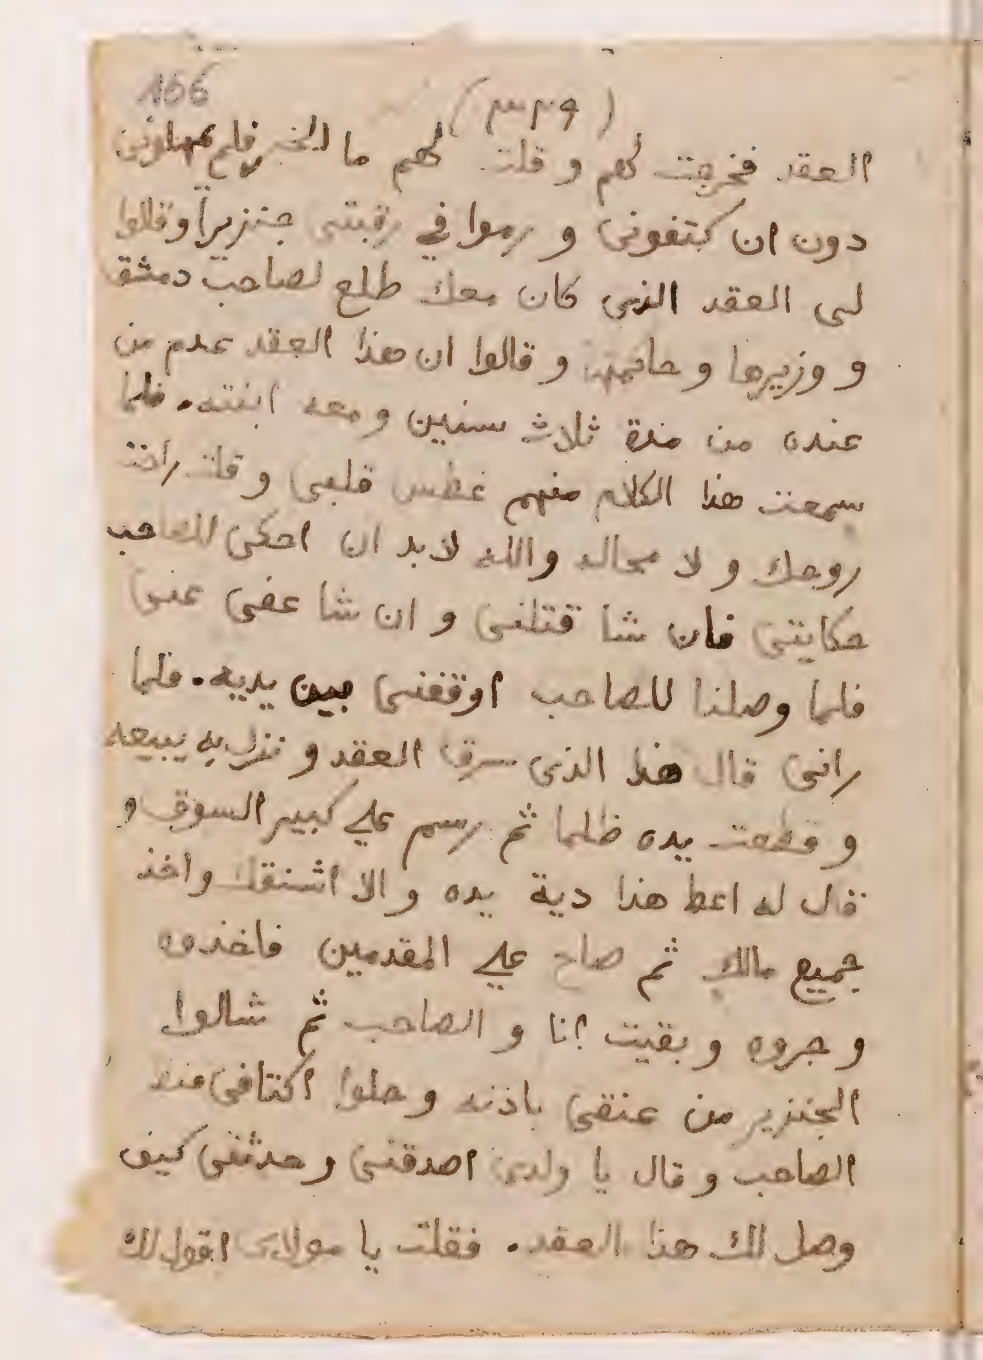 166
(٣٣٩)
العقد فخرجت لهم و قلت لهم ما الخبر فلم يمهلوني
دون ان كتفوني و رموا في رقبتي جنزيراً وقالوا
لى العقد الذى كان معك طلع لصاحب دمشق
و وزيرها و حاكمها و قالوا ان هذا العقد عدم من
عنده من مدة ثلاث سنين ومعه ابنته. فلما
سمعت هذا الكلام منهم غطس قلبى و قلت راحت
روحك و لا محاله والله لا بد ان احكى للصاحب
حكايتى فان شا قتلنى و ان شا عفى عنى
فلما وصلنا للصاحب اوقفنى بين يديه. فلما
رانى قال هذا الذى سرق العقد و نزل به يبيعه
و قطعت يده ظلما ثم رسم على كبير السوق و
قال له اعط هذا دية يده و الا اشنقك واخذ
جميع مالك ثم صاح على المقدمين فاخذوه
و جروه و بقيت انا و الصاحب ثم شالوا
الجنزير من عنقى باذنه و حلوا اكتافى منه
الصاحب و قال يا ولدى اصدقنى وحدثنى كيف
وصل لك هذا العقد. فقلت يا مولاى اقول لك